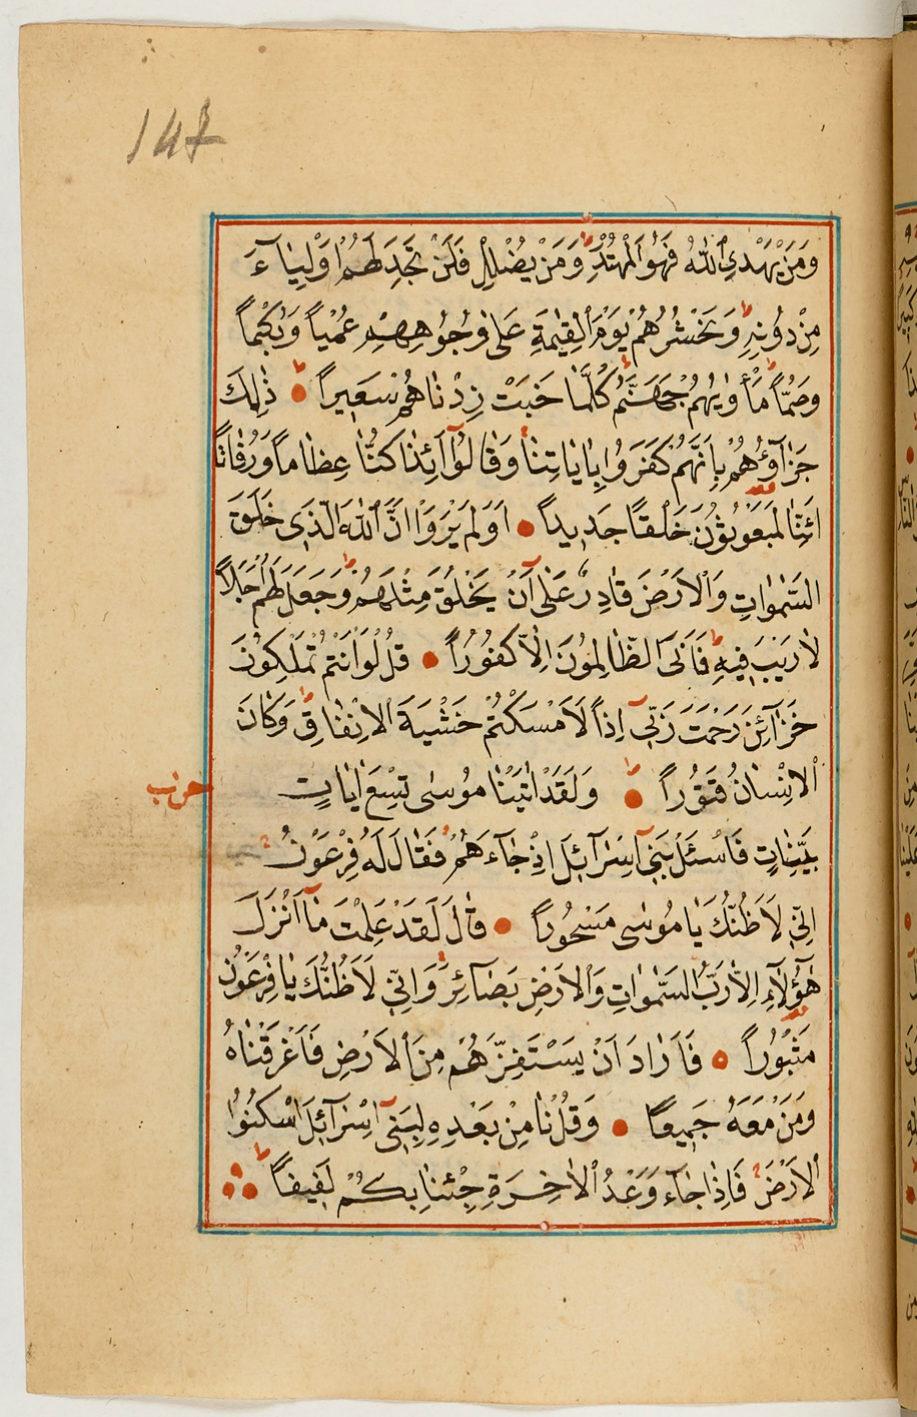 147
وَمَنْ يَهْدِ اللّٰهُ فَهُوَ الْمُهْتَدِ وَمَنْ يُضْلِلْ فَلَنْ تَجِدَ لَهُمْ اَوْلِيَاءَ
مِنْ دُونِهِ وَنَحْشُرُهُمْ يَوْمَ الْقِيٰمَةِ عَلٰى وُجُوهِهِمْ عُمْياً وَبُكْماً
وَصُمّاً مَأْوٰيهُمْ جَهَنَّمُ كُلَّمَا خَبَتْ زِدْنَاهُمْ سَعِيراً ذٰلِكَ
جَزَآؤُهُمْ بِاَنَّهُمْ كَفَرُوا بِاٰيَاتِنَا وَقَالُوٓا ءَاِذَا كُنَّا عِظَاماً وَرُفَاتاً
ءَاِنَّا لَمَبْعُوثُونَ خَلْقاً جَدِيداً اَوَلَمْ يَرَوْا اَنَّ اللّٰهَ الَّذِى خَلَقَ
السَّمٰوَاتِ وَالْاَرْضَ قَادِرٌ عَلٰٓى اَنْ يَخْلُقَ مِثْلَهُمْ وَجَعَلَ لَهُمْ اَجَلاً
لَا رَيْبَ فِيهِ فَاَبَى الظَّالِمُونَ اِلَّا كُفُوراً قُلْ لَوْ اَنْتُمْ تَمْلِكُونَ
خَزَآئِنَ رَحْمَتِ رَبِّىٓ اِذاً لَاَمْسَكْتُمْ خَشْيَةَ الْاِنْفَاقِ وَكَانَ
الْاِنْسَانُ قَتُوراً وَلَقَدْ اٰتَيْنَا مُوسٰى تِسْعَ اٰيَاتٍ
حزب
بَيِّنَاتٍ فَاسْئَلْ بَنِىٓ اِسْرَآئِلَ اِذْ جَآءَهُمْ فَقَالَ لَهُ فِرْعَوْنُ
اِنِّى لَاَظُنُّكَ يَا مُوسٰى مَسْحُوراً قَالَ لَقَدْ عَلِمْتَ مَآ اَنْزَلَ
هٰٓؤُلَآءِ اِلَّا رَبُّ السَّمٰوَاتِ وَالْاَرْضِ بَصَآئِرَ وَاِنِّى لَاَظُنُّكَ يَا فِرْعَوْنُ
مَثْبُوراً فَاَرَادَ اَنْ يَسْتَفِزَّهُمْ مِنَ الْاَرْضِ فَاَغْرَقْنَاهُ
وَمَنْ مَعَهُ جَمِيعاً وَقُلْنَا مِنْ بَعْدِهِ لِبَنِىٓ اِسْرَآئِلَ اسْكُنُوا
الْاَرْضَ فَاِذَا جَآءَ وَعْدُ الْاٰخِرَةِ جِئْنَا بِكُمْ لَفِيفاً